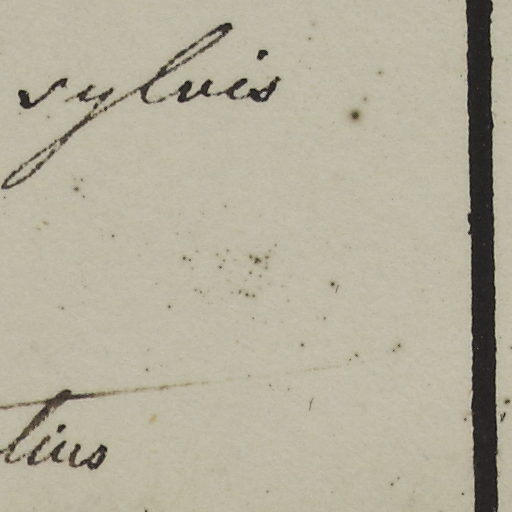 sylvis
tius